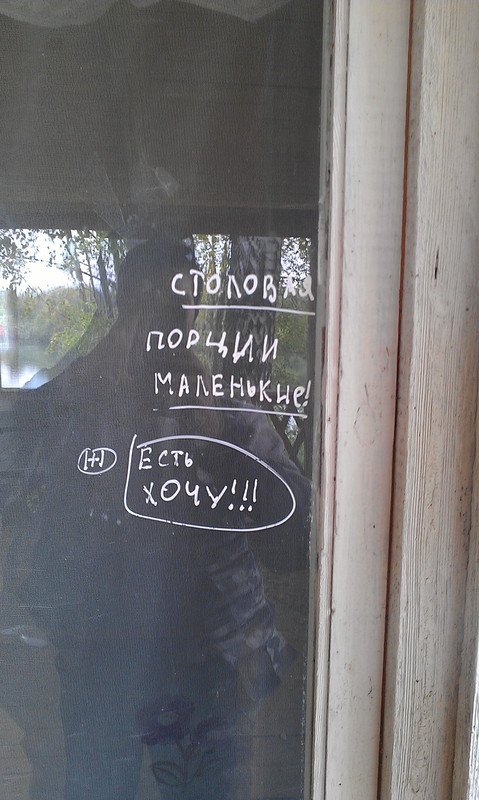 СТОЛОВАЯ
ПОРЦИИ
МАЛЕНЬКИЕ!
ЕСТЬ
ХОЧУ!!!